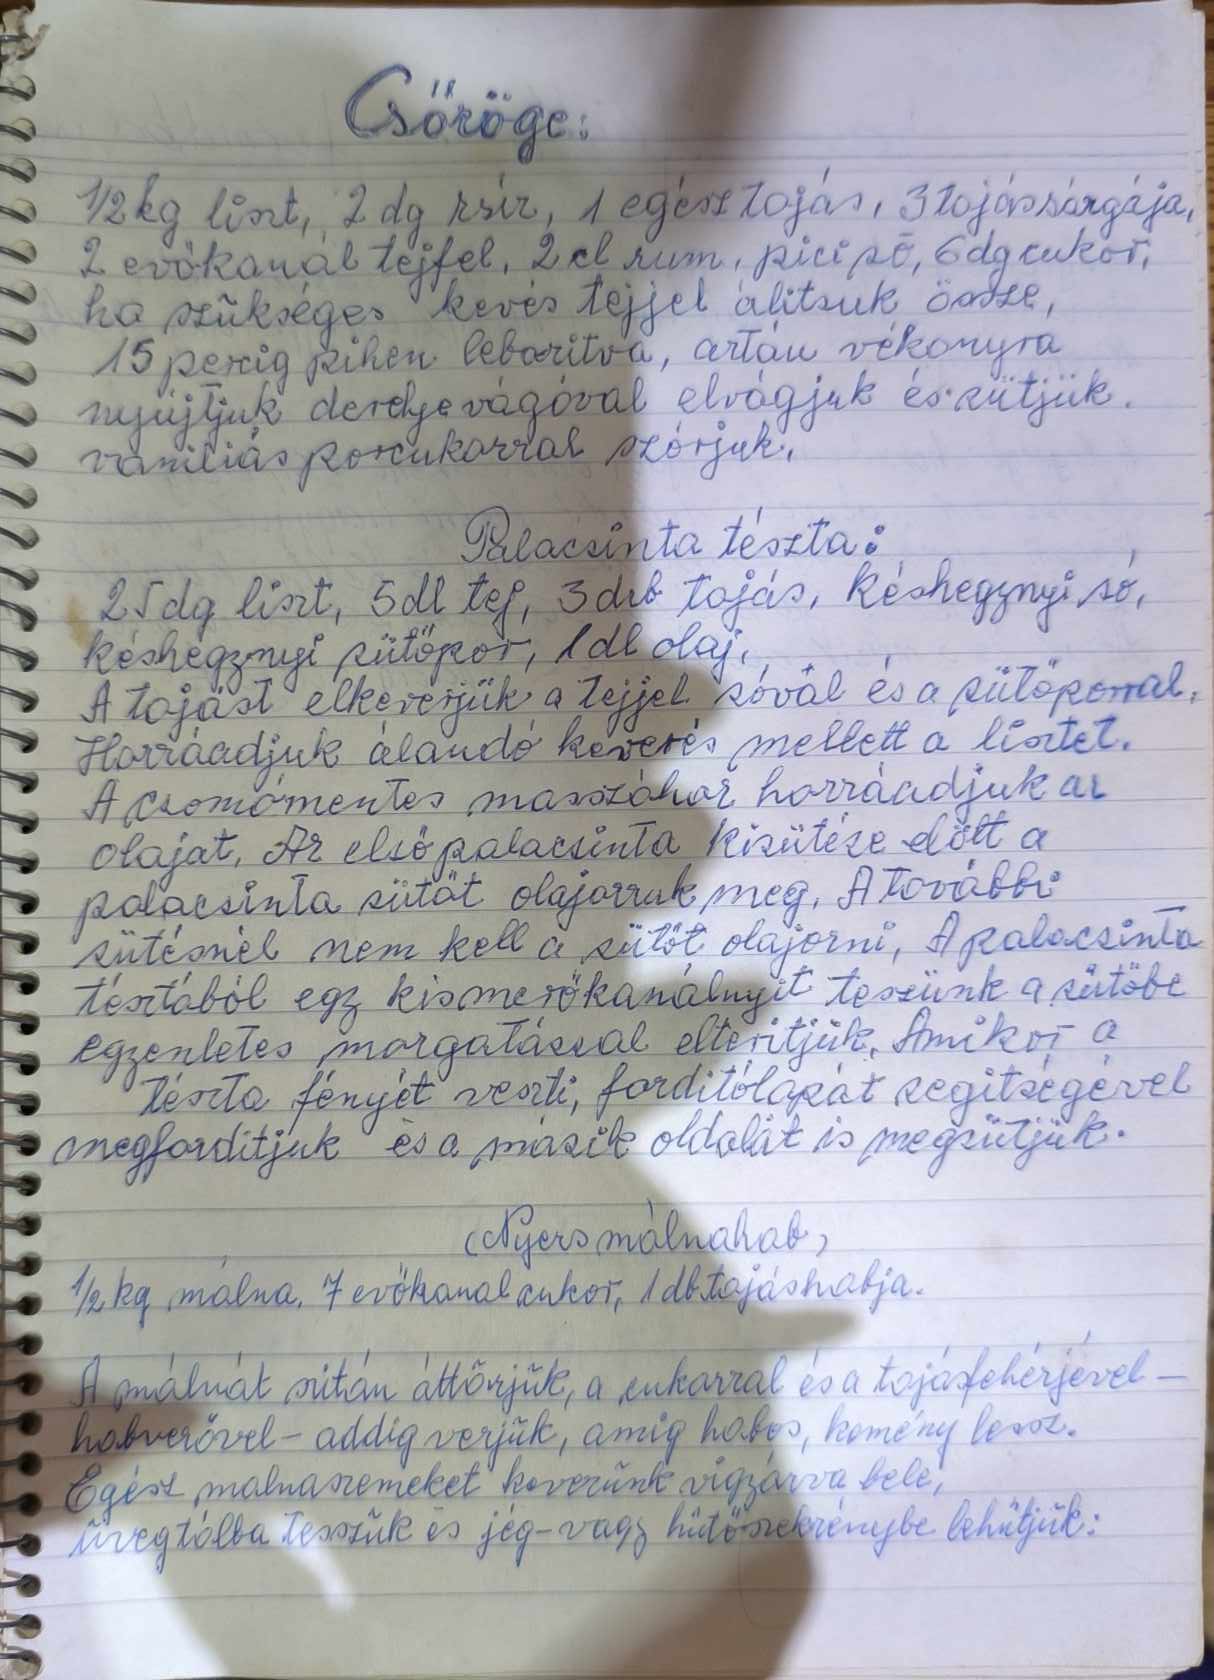 Csöröge:
1/2 kg liszt, 2 dg zsír, 1 egész tojás, 3 tojássárgája,
2 evőkanál tejfel, 2 cl rum, pici só, 6 dg cukor,
ha szükséges kevés tejjel álitsuk össze,
15 percig pihen leboritva, aztán vékonyra
nyújtjuk derelyevágóval elvágjuk és sütjük.
vaniliás porcukorral szórjuk.
Palacsinta tészta:
25 dg liszt, 5 dl tej, 3 drb tojás, késhegynyi só,
késhegynyi sütőpor, 1 dl olaj.
A tojást elkeverjük a tejjel sóval és a sütőporral.
Hozzáadjuk álandó keverés mellett a lisztet.
A csomómentes masszához hozzáadjuk az
olajat. Az első palacsinta kisütése előtt a
palacsinta sütőt olajozzuk meg. A további
sütésnél nem kell a sütőt olajozni, A palacsinta
tésztából egy kismerőkanálnyit teszünk a sütőbe
egyenletes mozgatással elteritjük. Amikor a
tészta fényét veszti, forditólapát segitségével
megforditjuk és a másik oldalát is megsütjük.
(Nyers málnahab)
1/2 kg málna. 7 evőkanal cukor, 1 db tojáshabja.
A málnát szitán áttörjük, a cukorral és a tojásfehérjével –
habverővel – addig verjük, amig habos, kemény lessz.
Egész málnaszemeket keverünk vigyázva bele,
üvegtálba tesszük és jég- vagy hűtőszekrénybe lehűtjük: